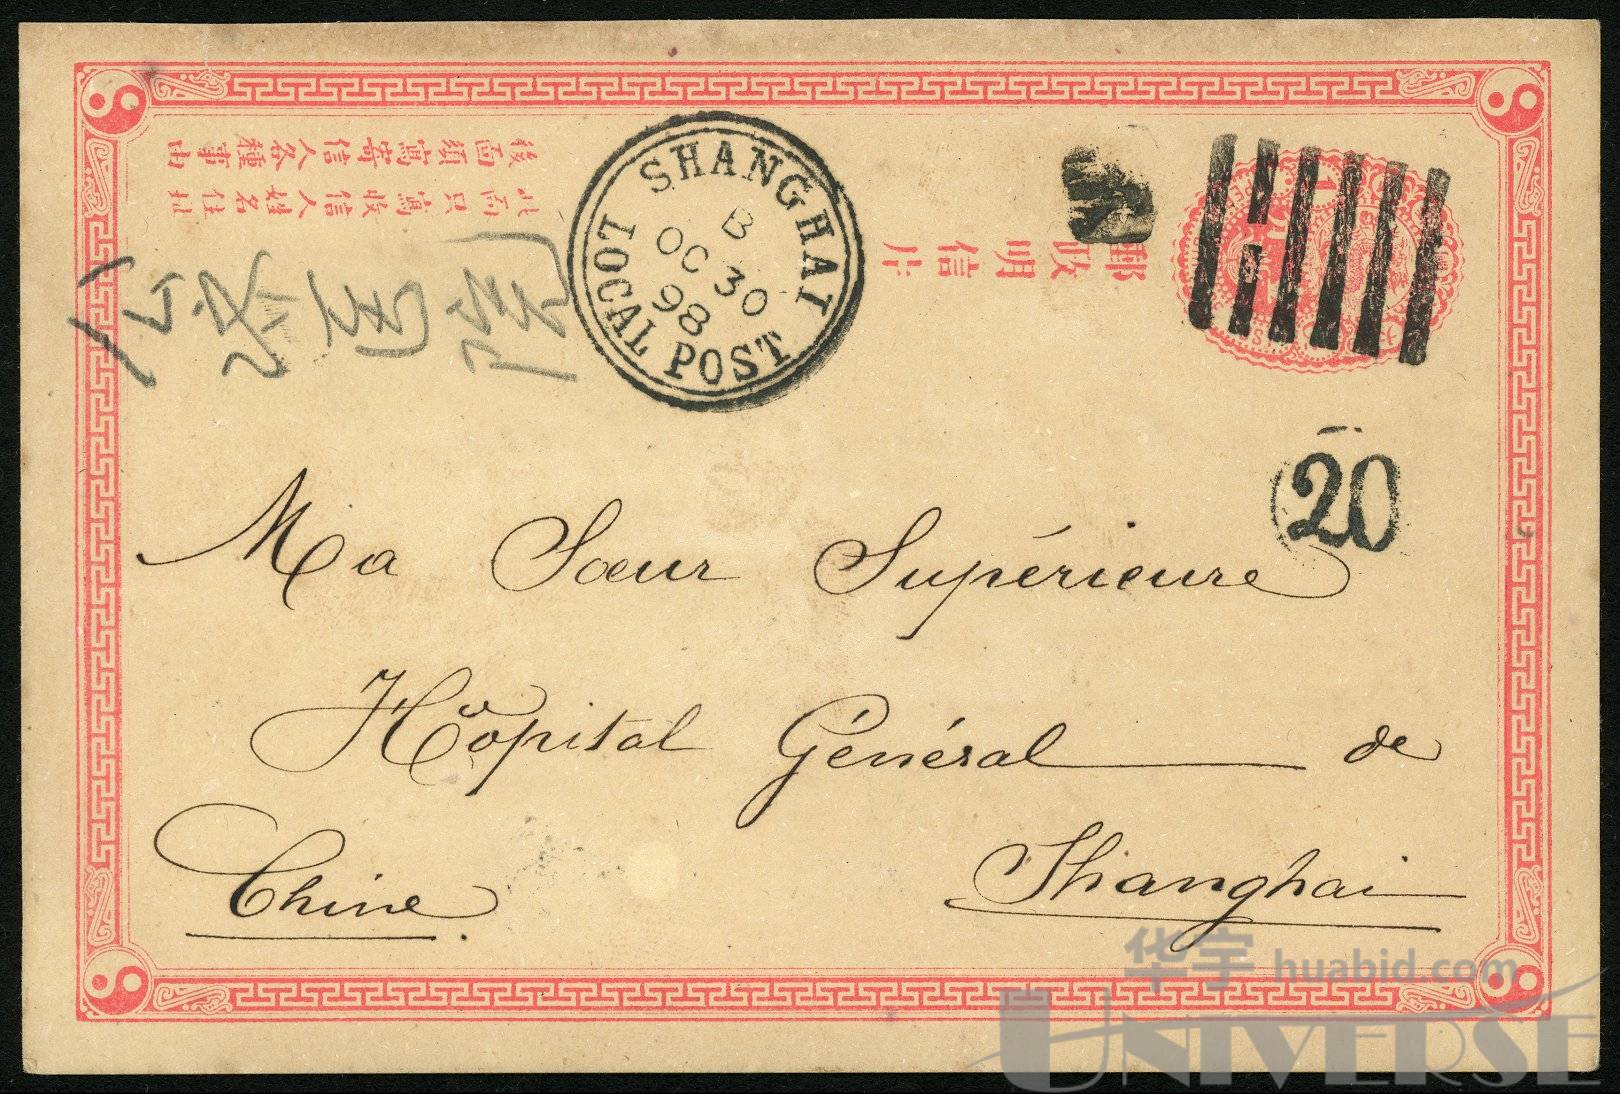 後面須寫寄信人各種事由
此面只寫收信人姓名住址
郵政明信片
公濟醫院
SHANGHAI
LOCAL POST
B
OC 30
98
20
Ma Sœur Supérieure
Hôpital Général de
Shanghai
Chine.
华宇 huabid.com
UNIVERSE